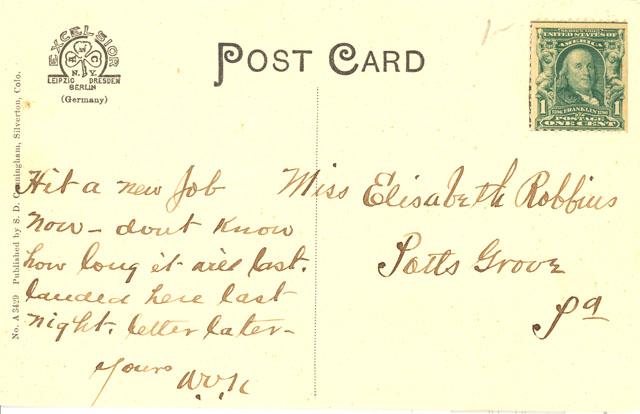 EXCELSIOR
N.Y.
LEIPZIG DRESDEN
BERLIN
(Germany)
POST CARD
UNITED STATES OF
AMERICA
FRANKLIN
POSTAGE
1 ONE CENT 1
No. A 3429 Published by S. D. Cunningham, Silverton, Colo.
Hit a new Job
now - dont Know
how long it will last.
landed here last
night. letter later-
Yours
Miss Elisabeth Robbins
Potts Grove
Pa